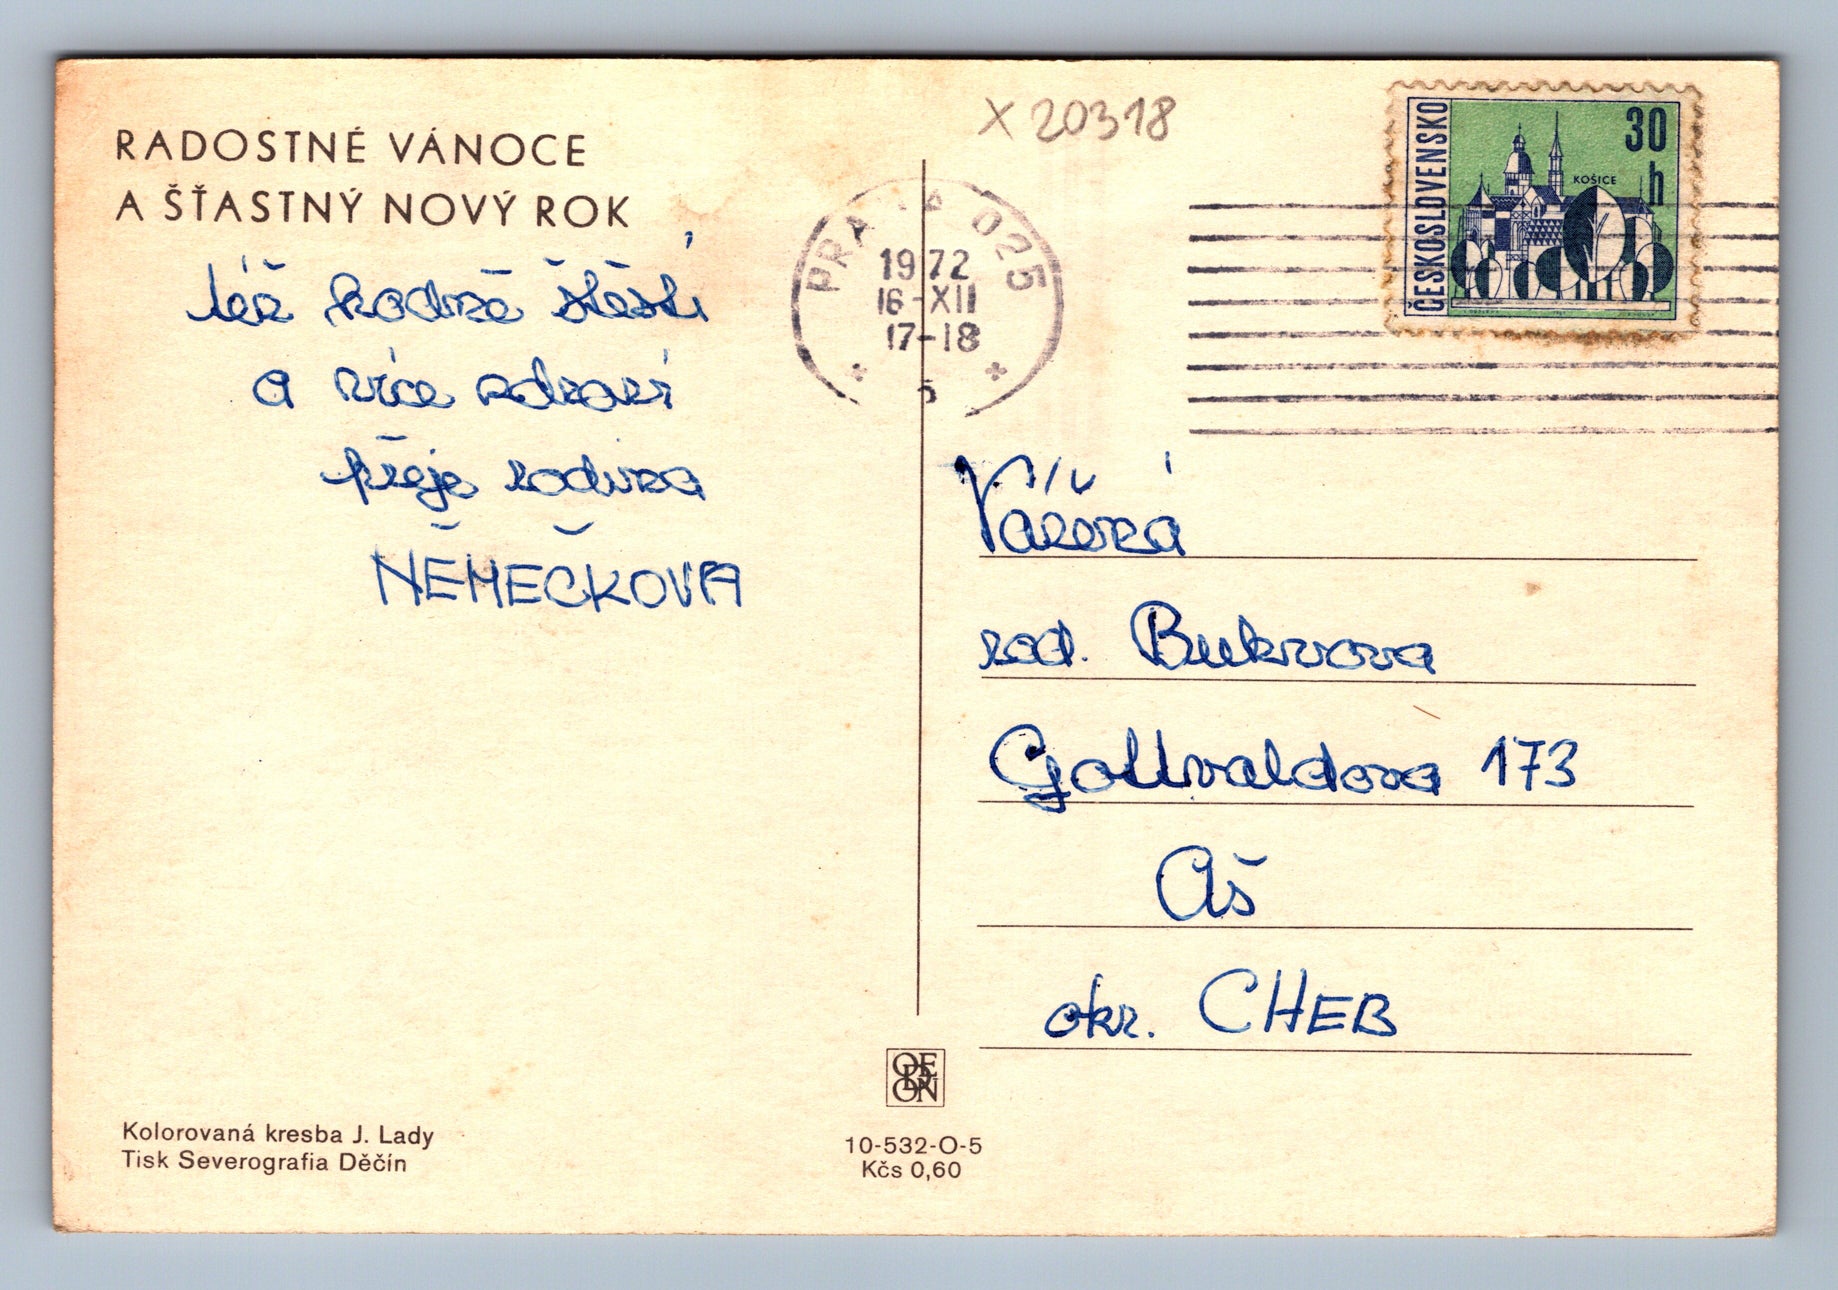 RADOSTNÉ VÁNOCE
A ŠŤASTNÝ NOVÝ ROK
též hodně štěstí
a více zdraví
přeje rodina
NĚMEČKOVA
X 20318
PRAHA 025
1972
16-XII
17-18
5
ČESKOSLOVENSKO
30
h
KOŠICE
rod. Bukvova
Gottvaldova 173
Aš
okr. CHEB
ODEON
10-532-O-5
Kčs 0,60
Kolorovaná kresba J. Lady
Tisk Severografia Děčín